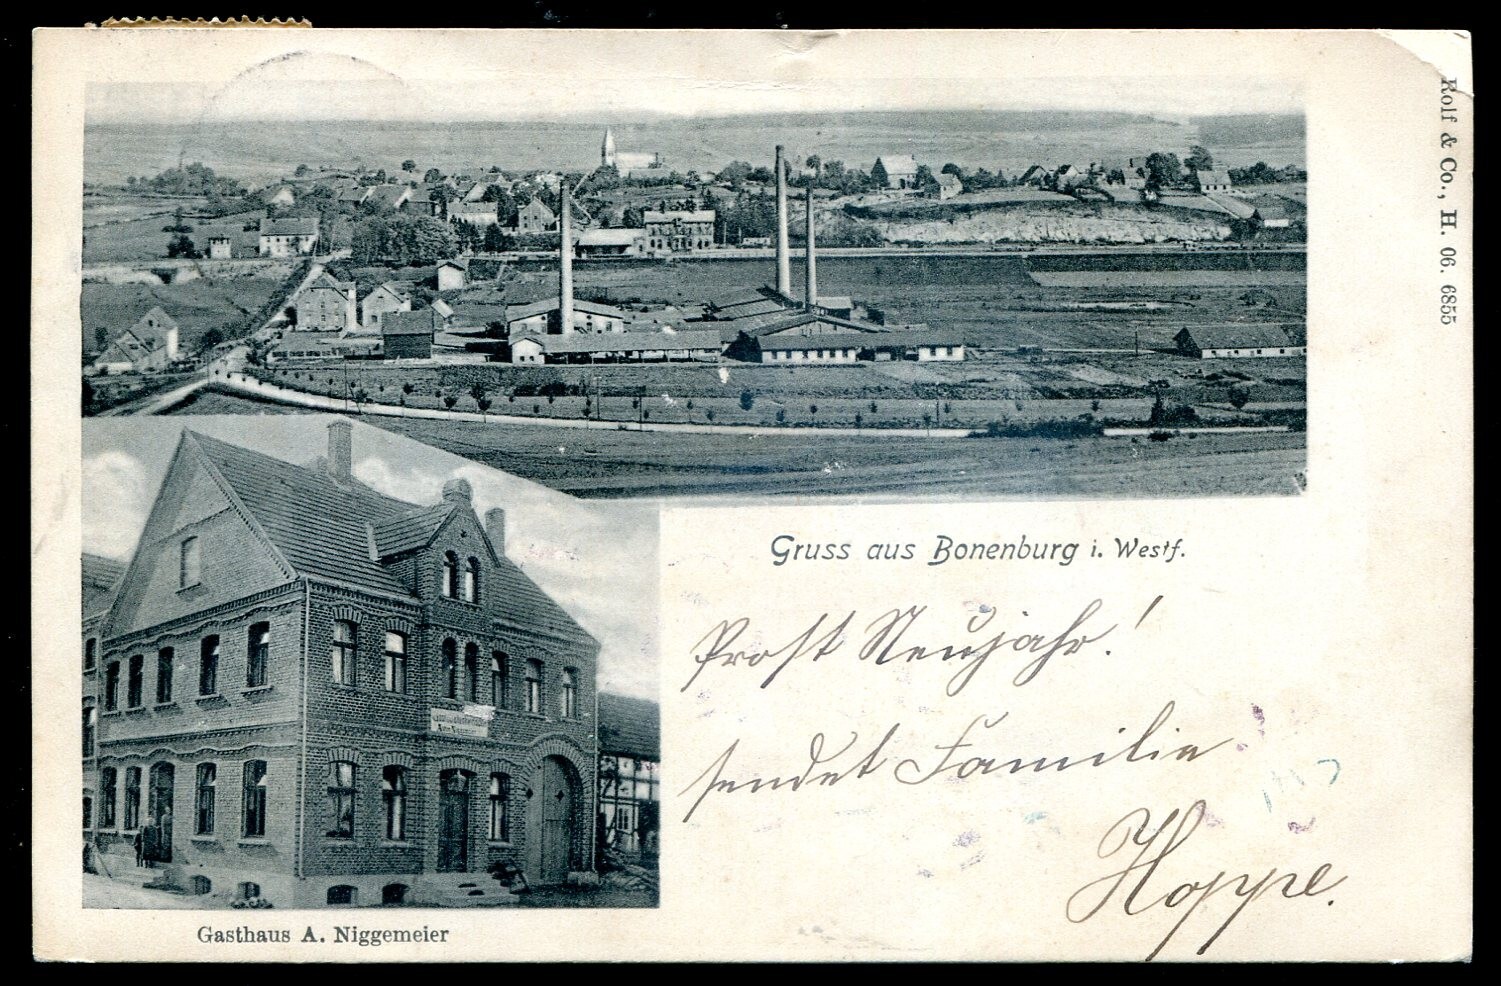 Rolf & Co., H. 06. 6855
Gruss aus Bonenburg i. Westf.
Prost Neujahr!
sendet Familie
Hoppe.
Gasthaus A. Niggemeier